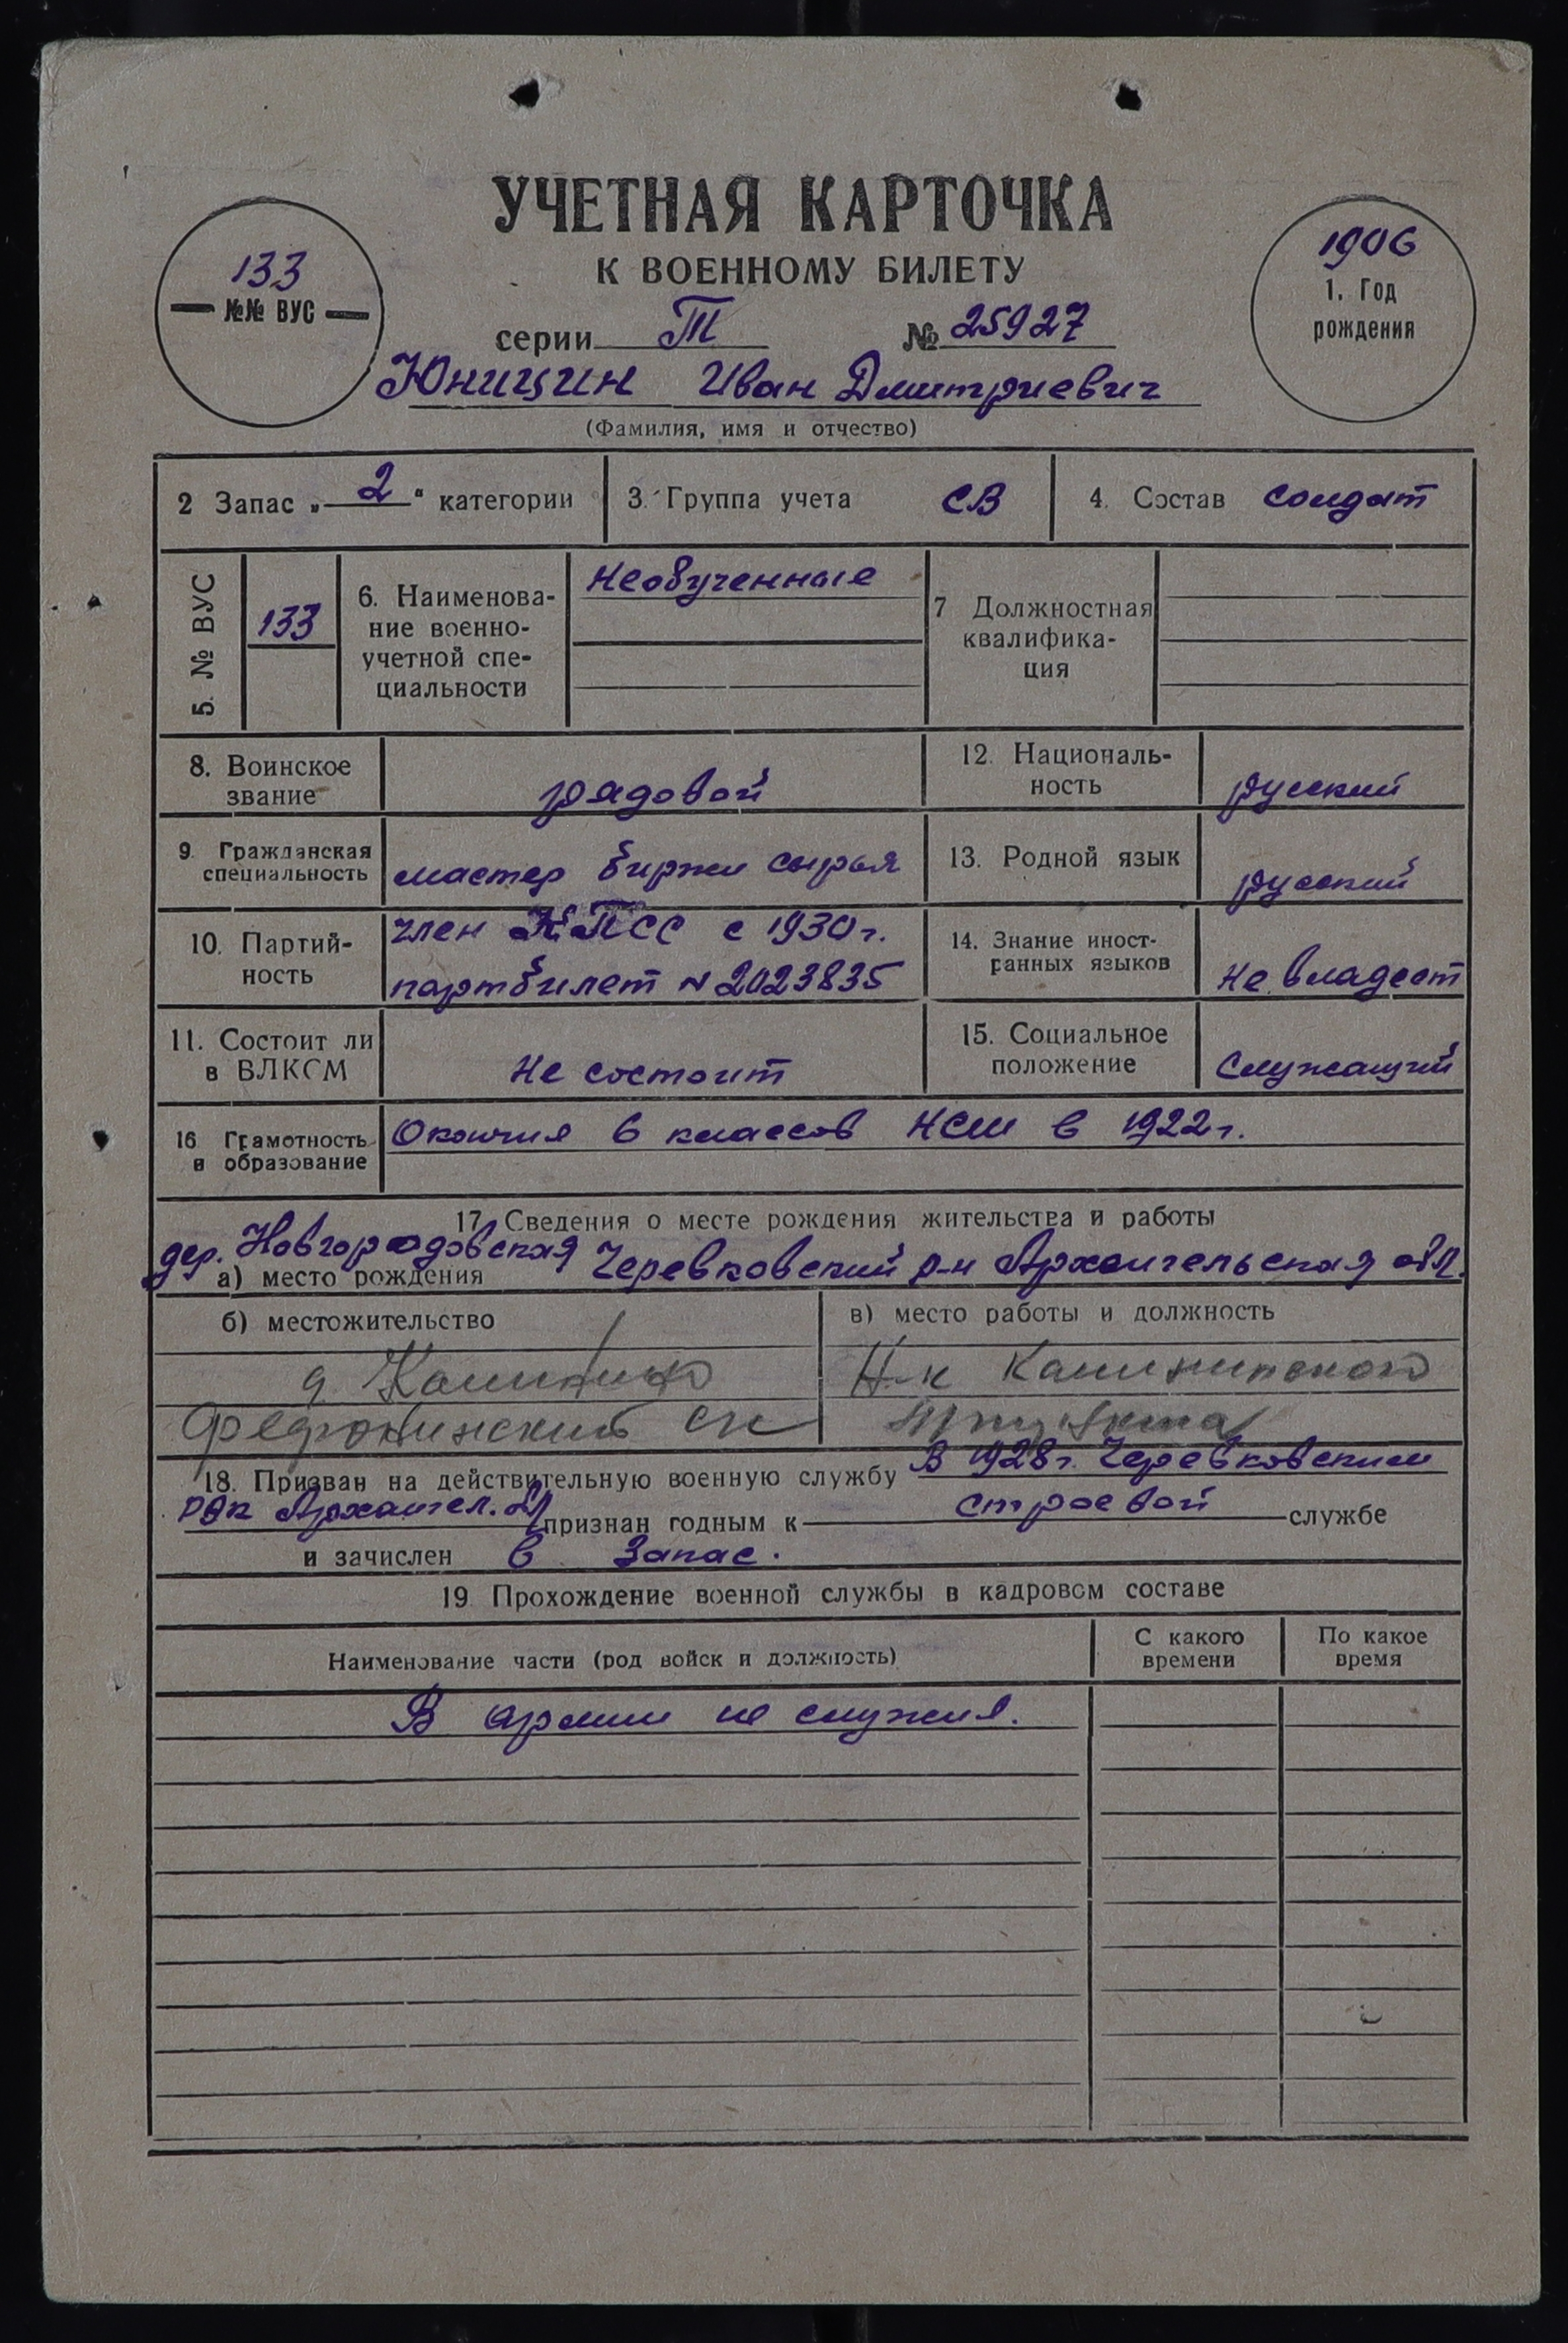 УЧЕТНАЯ КАРТОЧКА
К ВОЕННОМУ БИЛЕТУ
133
№№ ВУС
1906
1. Год
рождения
серии Т № 25927
Юницин Иван Дмитриевич
(Фамилия, имя и отчество)
2 Запас „ 2 “ категории
3. Группа учета СВ
4. Состав солдат
5. № ВУС
133
6. Наименова-
ние военно-
учетной спе-
циальности
Необученные
7 Должностная
квалифика-
ция
8. Воинское
звание
рядовой
12. Националь-
ность
русский
9. Гражданская
специальность
мастер биржи сырья
13. Родной язык
русский
10. Партий-
ность
член КПСС с 1930 г.
партбилет № 2023835
14. Знание иност-
ранных языков
не владеет
11. Состоит ли
в ВЛКСМ
Не состоит
15. Социальное
положение
Служащий
16 Грамотность
и образование
Окончил 6 классов НСШ в 1922 г.
17. Сведения о месте рождения жительства и работы
дер. Новгородовская Черевковский р-н Архангельская обл.
а) место рождения
б) местожительство
в) место работы и должность
д.
Н-к Калининского
18. Призван на действительную военную службу В 1928 г. Черевковским
РВК Архангел. признан годным к строевой службе
и зачислен в запас.
19. Прохождение военной службы в кадровом составе
Наименование части (род войск и должность)
С какого
времени
По какое
время
В армии не служил.